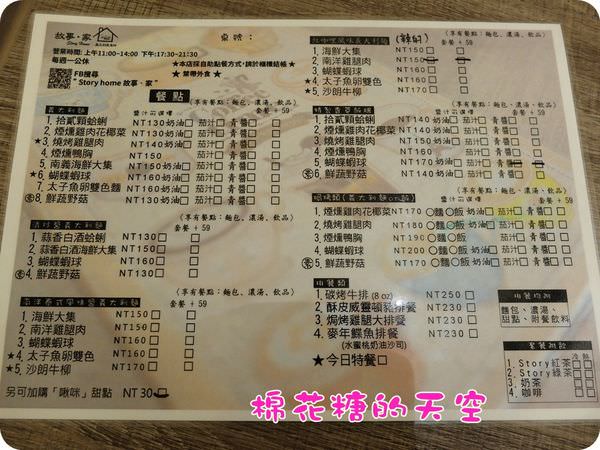 故事·家
Story Home
桌號:
營業時間:上午11:00~14:00 下午17:30~21:30
每週一公休
★本店採自助點餐方式,請於櫃檯結帳★
★禁帶外食★
FB搜尋
"Story home 故事、家"
餐點
義大利麵
(享有餐點:麵包、濃湯、飲品)
醬汁可選擇 套餐 +59
1. 拾貳顆蛤蜊 NT130 奶油□ 茄汁□ 青醬□
2. 煙燻雞肉花椰菜 NT130 奶油□ 茄汁□ 青醬□
★3. 燒烤雞腿肉 NT140 奶油□ 茄汁□ 青醬□
4. 煙燻鴨胸 NT150 奶油□ 茄汁□ 青醬□
5. 南義海鮮大集 NT150 奶油□ 茄汁□ 青醬□
★6. 蝴蝶蝦球 NT160 奶油□ 茄汁□ 青醬□
7. 太子魚卵雙色麵 NT160 奶油□ 茄汁□ 青醬□
8. 鮮蔬野菇 NT140 奶油□ 茄汁□ 青醬□
清炒蒜義大利麵
套餐 +59
1. 蒜香白酒蛤蜊 NT130□
2. 蒜香白酒海鮮大集 NT150□
3. 蝴蝶蝦球 NT160□
4. 鮮蔬野菇 NT130□
南洋泰式風味醬義大利麵
套餐 +59
1. 海鮮大集 NT150□
2. 南洋雞腿肉 NT150□
3. 蝴蝶蝦球 NT160□
★4. 太子魚卵雙色 NT160□
★5. 沙朗牛柳 NT170□
另可加購「啾咪」甜點 NT30□
紅咖哩風味義大利麵 (辣的)
(享有餐點:麵包、濃湯、飲品)
套餐 +59
1. 海鮮大集 NT150□
2. 南洋雞腿肉 NT150□
3. 蝴蝶蝦球 NT160□
★4. 太子魚卵雙色 NT160□
★5. 沙朗牛柳 NT170□
(享有餐點:麵包、濃湯、飲品)
醬汁可選擇 套餐 +59
1. 拾貳顆蛤蜊 NT140 奶油□ 茄汁□ 青醬□
2. 煙燻雞肉花椰菜 NT140 奶油□ 茄汁□ 青醬□
3. 燒烤雞腿肉 NT150 奶油□ 茄汁□ 青醬□
★4. 煙燻鴨胸 NT160 奶油□ 茄汁□ 青醬□
5. 蝴蝶蝦球 NT170 奶油□ 茄汁□ 青醬□
6. 鮮蔬野菇 NT140 奶油□ 茄汁□ 青醬□
焗烤類(義大利麵or飯)
(享有餐點:麵包、濃湯、飲品)
1. 煙燻雞肉花椰菜 NT170 ○麵○飯 奶油□ 茄汁□ 青醬□
2. 燒烤雞腿肉 NT180 ○麵○飯 奶油□ 茄汁□ 青醬□
3. 煙燻鴨胸 NT190 ○麵○飯 奶油□ 茄汁□ 青醬□
★4. 蝴蝶蝦球 NT200 ○麵○飯 奶油□ 茄汁□ 青醬□
5. 鮮蔬野菇 NT170 ○麵○飯 奶油□ 茄汁□ 青醬□
排餐類
1. 碳烤牛排(8 oz) NT250□
2. 酥皮威靈頓豬排餐 NT230□
3. 焗烤雞腿大排餐 NT230□
4. 麥年鰈魚排餐 NT230□
(水蜜桃奶油沙司)
★今日特餐□
排餐均附
麵包、濃湯、
甜點、附餐飲料
套餐附飲
1. Story紅茶
2. Story綠茶
3. 奶茶
4. 咖啡
棉花糖的天空